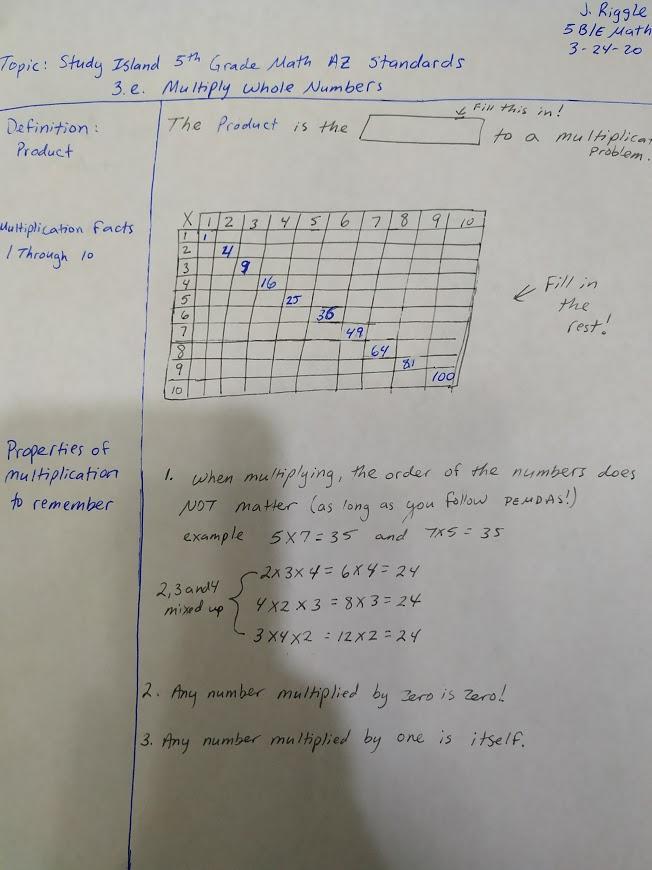 J. Riggle
5 B/E Math
3-24-20
Topic: Study Island 5th Grade Math AZ Standards
3.e. Multiply Whole Numbers
Definition:
Product
Fill this in!
The Product is the to a multiplicat
problem.
Multiplication Facts
1 Through 10
X 1 2 3 4 5 6 7 8 9 10
1 1
2 4
3 9
4 16
5 25
6 36
7 49
8 64
9 81
10 100
Fill in
the
rest!
Properties of
multiplication
to remember
1. When multiplying, the order of the numbers does
NOT matter (as long as you follow PEMDAS!)
example 5x7=35 and 7x5=35
2,3 and 4
mixed up
2x3x4=6x4=24
4x2x3=8x3=24
3x4x2=12x2=24
2. Any number multiplied by zero is zero!
3. Any number multiplied by one is itself.